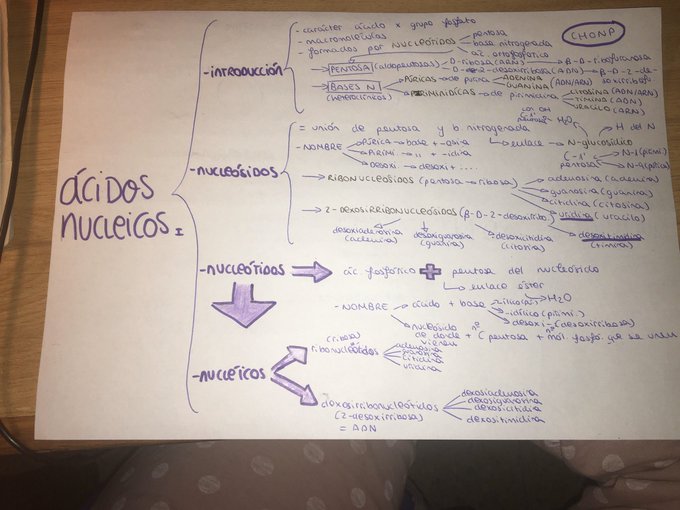 ácidos
nucleicos I
-INTRODUCCIÓN
- carácter ácido x grupo fosfato
- macromoléculas
- formados por NUCLEÓTIDOS
pentosa
base nitrogenada
ác. ortofosfórico
CHONP
- PENTOSA (aldopentosas)
D-ribosa (ARN) → β-D-ribofuranosa
D-2-desoxirribosa (ADN) → β-D-2-de-
soxirribofu
- BASES N
(heterocíclicos)
PÚRICAS → de purina
ADENINA (ADN/ARN)
GUANINA (ADN/ARN)
PIRIMIDÍDICAS → de pirimidina
CITOSINA (ADN/ARN)
TIMINA (ADN)
URACILO (ARN)
-NUCLEÓSIDOS
= unión de pentosa y b. nitrogenada
enlace → N-glucosídico
con OH
pentosa
H₂O
H del N
C-1'
pentosa
N-1 (pirimi.)
N-9 (púrica)
- NOMBRE
PÚRICA → base + -osina
PIRIMI. → " + -idina
DESOXI → desoxi + ....
- RIBONUCLEÓSIDOS (pentosa → ribosa)
adenosina (adenina)
guanosina (guanina)
citidina (citosina)
uridina (uracilo)
- 2-DEXOSIRRIBONUCLEÓSIDOS (β-D-2-desoxirribo.)
desoxiadenosina
(adenina)
desoxiguanosina
(guanina)
desoxicitidina
(citosina)
desoxitimidina
(timina)
-NUCLEÓTIDOS
ác. fosfórico + pentosa del nucleósido
enlace éster
H₂O
- NOMBRE
ácido + base
-idílico (pirimi.)
desoxi- (desoxirribosa)
nucleósido
de donde
vienen
+ nº C pentosa + nº mol. fosfo. que se unen
-NUCLEÍCOS
(ribosa)
ribonucleótidos
adenosina
guanosina
citidina
uridina
dexosirribonucleótidos
(2-desoxirribosa)
= ADN
dexosiadenosina
dexosiguanosina
dexosicitidina
dexositimidina